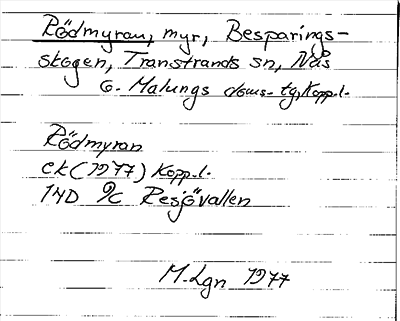 Rödmyran, myr, Besparings-
skogen, Transtrands sn, Nås
o. Malungs doms- tg, Kopp. l.
Rödmyran
ek (1977) Kopp. l.
14D 9c Resjövallen
M. Lgn 1977